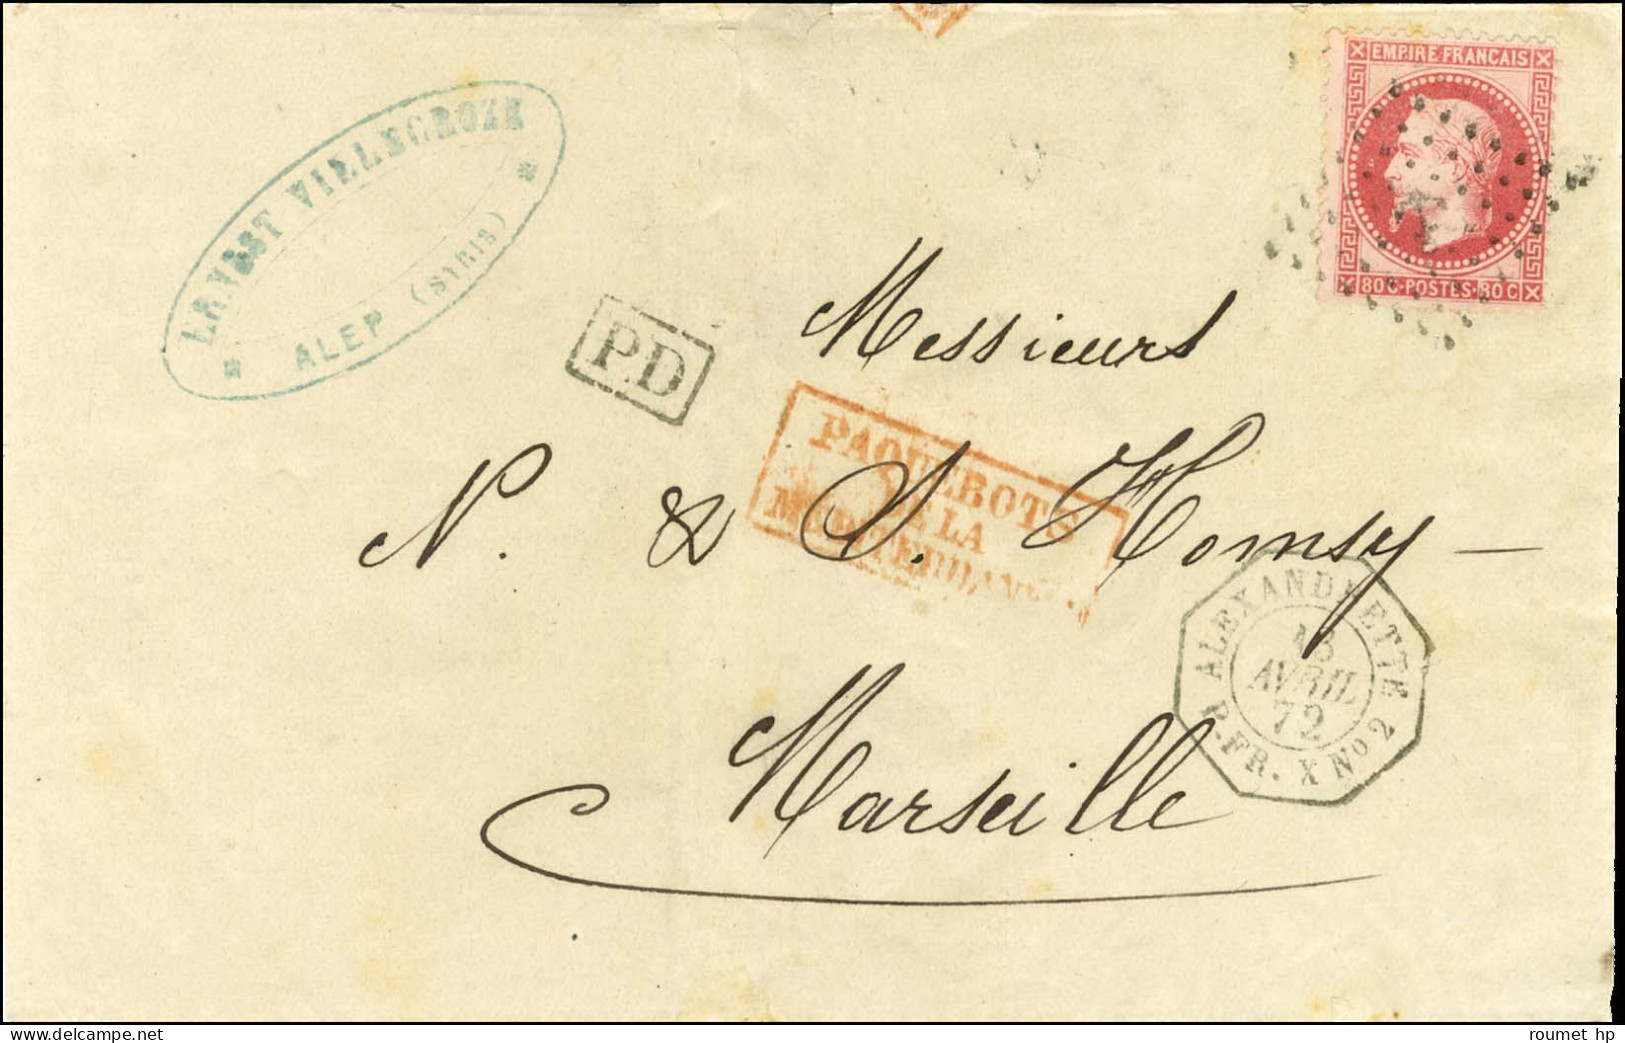 EMPIRE FRANCAIS
80 C · POSTES · 80 C
ERNEST VILLECROZE
ALEP (SYRIE)
P.D
Messieurs
PAQUEBOTS
DE LA
MEDITERRANEE
N. & S. Homsy
ALEXANDRETTE
18
AVRIL
72
P. FR. X No 2
Marseille
roumet hp